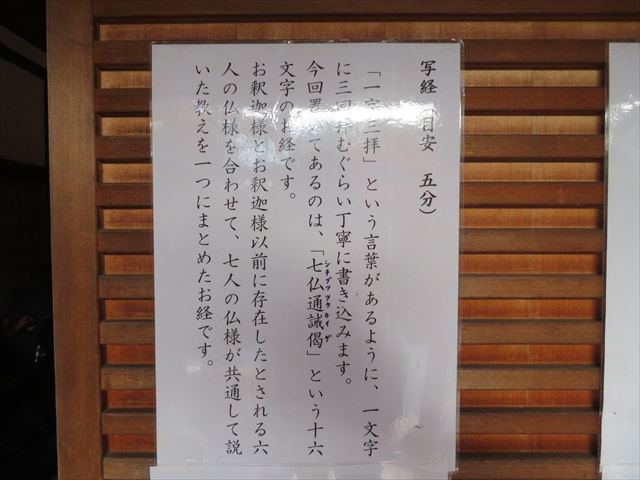 写経（目安　五分）
「一字三拝」という言葉があるように、一文字
に三回拝むぐらい丁寧に書き込みます。
今回置いてあるのは、「七仏通誡偈」という十六
シチブツツウカイゲ
文字のお経です。
お釈迦様とお釈迦様以前に存在したとされる六
人の仏様を合わせて、七人の仏様が共通して説
いた教えを一つにまとめたお経です。